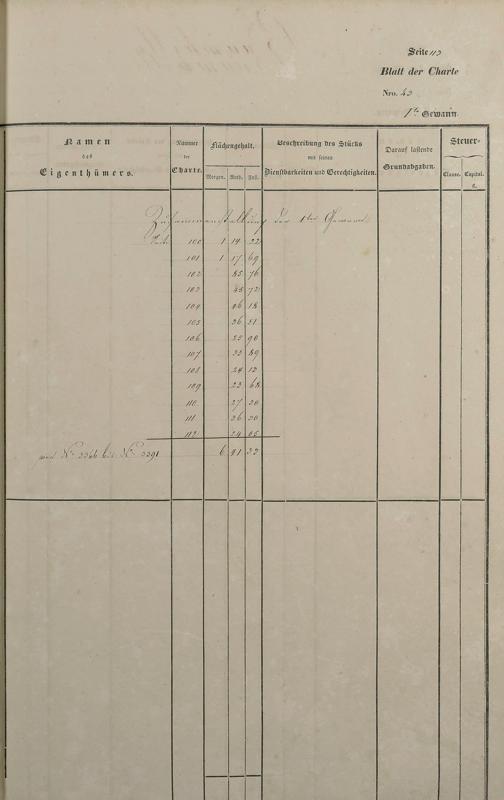 Seite 113
Blatt der Charte
Nro. 43
1te Gewann
Namen des Eigenthümers.
Nummer der Charte.
Flächengehalt.
Morgen. Ruth. Fuß.
Beschreibung des Stücks mit seinen Dienstbarkeiten und Gerechtigkeiten.
Darauf lastende Grundabgaben.
Steuer-
Classe. Capital.
fl.
Zusammenstellung der 1ten Gewann
Seite 100 1 14 22
101 1 17 69
102 85 76
103 45 72
104 46 18
105 36 51
106 25 90
107 33 89
108 24 12
109 23 68
110 27 30
111 36 30
112 24 05
von No 3366 bis No 3391 6 41 32